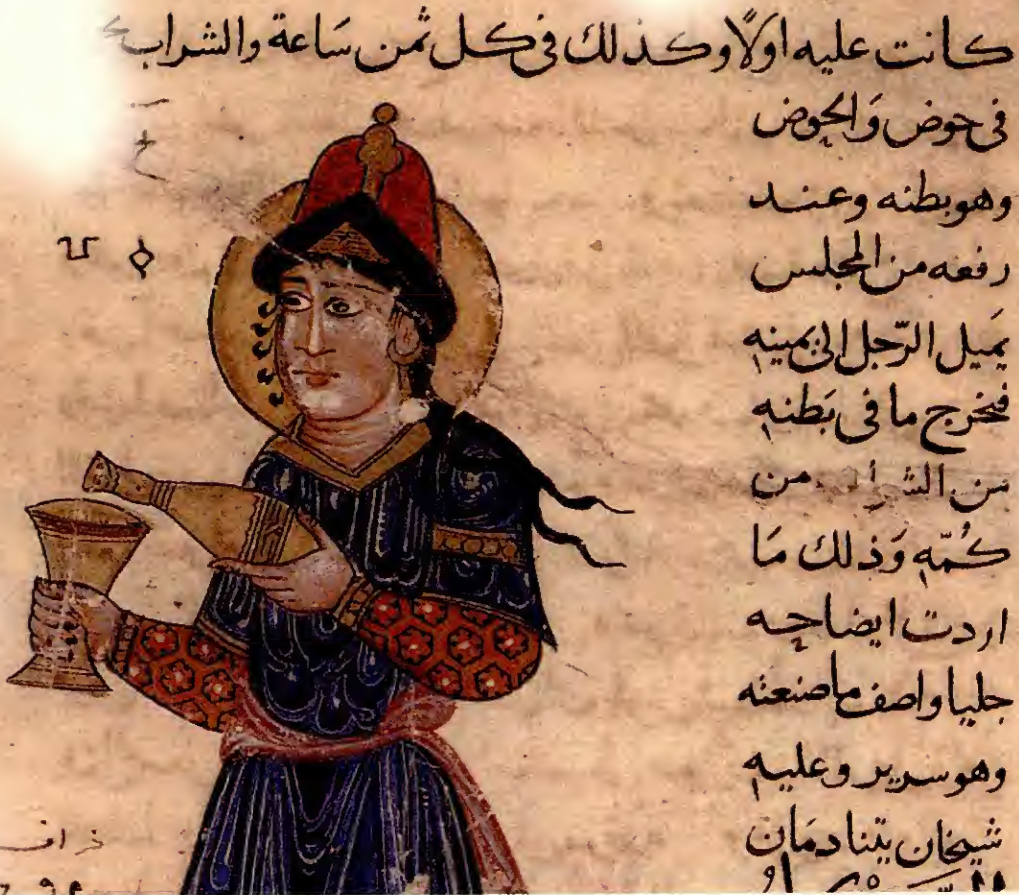 كانت عليه اولًا وكذلك فى كل ثمن سَاعة والشراب
فى حوض وَالحوض
وهو بطنه وعند
رفعه من المجلس
يميل الرّجل الى يمينهِ
فيخرج ما فى بَطنهِ
من الشراب من
كُمّهِ وَذلك مَا
اردت ايضاحه
جليا واصف ما صنعته
وهو سرير وعليهِ
شيخان يتنادمَان